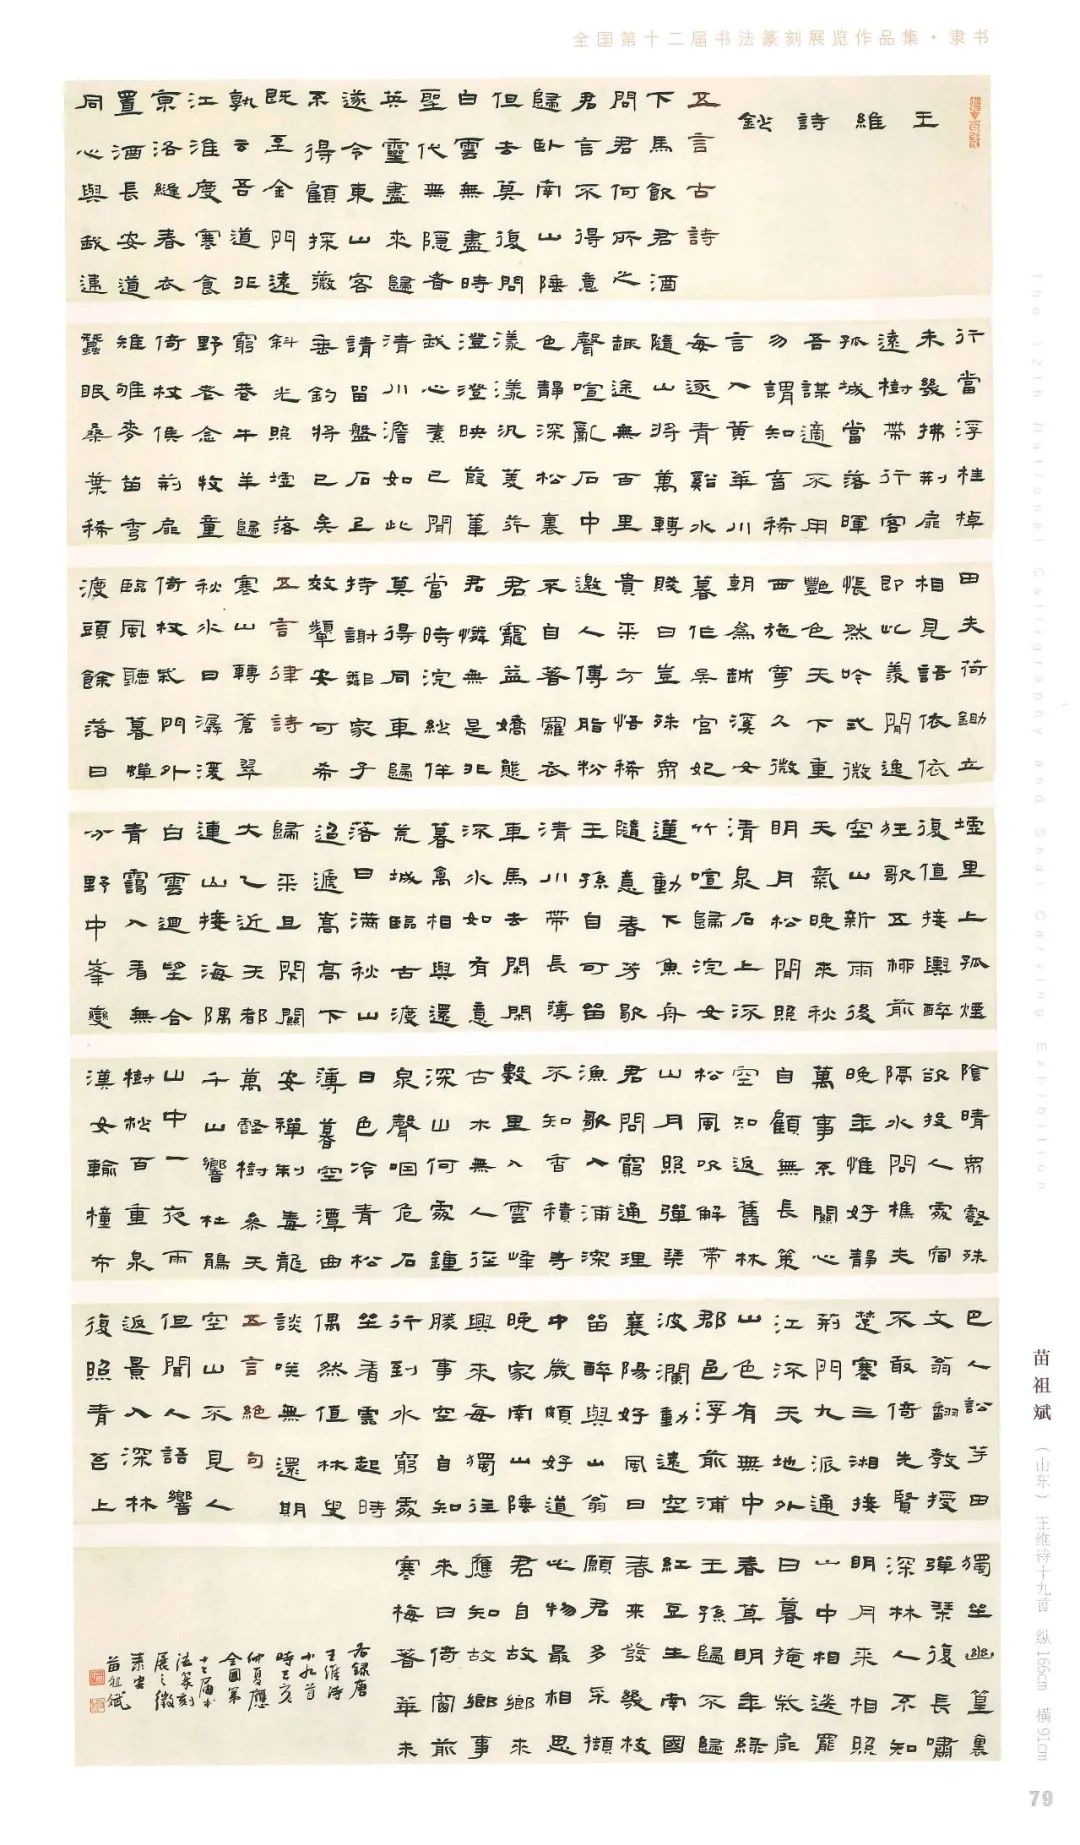 全国第十二届书法篆刻展览作品集·隶书
王維詩鈔
五言古詩
下馬飲君酒
問君何所之
君言不得意
歸臥南山陲
但去莫復問
白雲無盡時
聖代無隱者
英靈盡來歸
遂令東山客
不得顧採薇
既至金門遠
孰云吾道非
江淮度寒食
京洛縫春衣
置酒長安道
同心與我違
行當浮桂棹
未幾拂荊扉
遠樹帶行客
孤城當落暉
吾謀適不用
勿謂知音稀
言入黃華川
每逐青谿水
隨山將萬轉
趣途無百里
聲喧亂石中
色靜深松裏
漾漾汎菱荇
澄澄映葭葦
我心素已閒
清川澹如此
請留盤石上
垂釣將已矣
斜光照墟落
窮巷牛羊歸
野老念牧童
倚杖候荊扉
雉雊麥苗秀
蠶眠桑葉稀
田夫荷鋤立
相見語依依
即此羨閒逸
悵然吟式微
艷色天下重
西施寧久微
朝為越溪女
暮作吳宮妃
賤日豈殊眾
貴來方悟稀
邀人傅脂粉
不自著羅衣
君寵益嬌態
君憐無是非
當時浣紗伴
莫得同車歸
持謝鄰家子
效顰安可希
五言律詩
寒山轉蒼翠
秋水日潺湲
倚杖柴門外
臨風聽暮蟬
渡頭餘落日
墟里上孤煙
復值接輿醉
狂歌五柳前
空山新雨後
天氣晚來秋
明月松間照
清泉石上流
竹喧歸浣女
蓮動下魚舟
隨意春芳歇
王孫自可留
清川帶長薄
車馬去閑閑
流水如有意
暮禽相與還
荒城臨古渡
落日滿秋山
迢遞嵩高下
歸來且閉關
太乙近天都
連山接海隅
白雲迴望合
青靄入看無
分野中峯變
陰晴眾壑殊
欲投人處宿
隔水問樵夫
晚年惟好靜
萬事不關心
自顧無長策
空知返舊林
松風吹解帶
山月照彈琴
君問窮通理
漁歌入浦深
不知香積寺
數里入雲峰
古木無人徑
深山何處鐘
泉聲咽危石
日色冷青松
薄暮空潭曲
安禪制毒龍
萬壑樹參天
千山響杜鵑
山中一夜雨
樹杪百重泉
漢女輸橦布
巴人訟芋田
文翁翻教授
不敢倚先賢
楚塞三湘接
荊門九派通
江流天地外
山色有無中
郡邑浮前浦
波瀾動遠空
襄陽好風日
留醉與山翁
中歲頗好道
晚家南山陲
興來每獨往
勝事空自知
行到水窮處
坐看雲起時
偶然值林叟
談笑無還期
五言絕句
空山不見人
但聞人語響
返景入深林
復照青苔上
獨坐幽篁裏
彈琴復長嘯
深林人不知
明月來相照
山中相送罷
日暮掩柴扉
春草明年綠
王孫歸不歸
紅豆生南國
春來發幾枝
願君多采擷
此物最相思
君自故鄉來
應知故鄉事
來日倚窗前
寒梅著華未
右錄唐
王維詩
十九首
時己亥
仲夏應
全國第
十二届书
法篆刻
展之徵
泰安
苗祖斌
The 12th National Calligraphy and Seal Carving Exhibition
苗祖斌（山东）王维诗十九首 纵166cm 横91cm
79